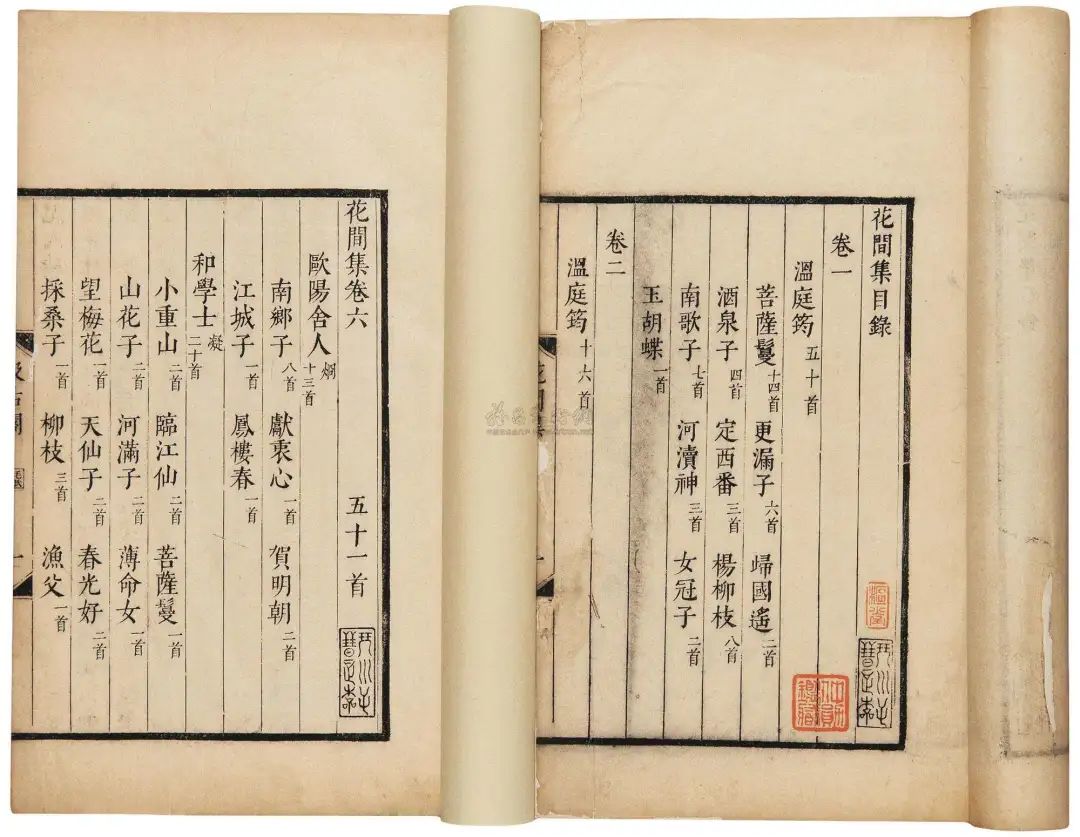 花間集目錄
卷一
溫庭筠五十首
菩薩鬘十四首 更漏子六首 歸國遙二首
酒泉子四首 定西番三首 楊柳枝八首
南歌子七首 河瀆神三首 女冠子二首
玉胡蝶一首
卷二
溫庭筠十六首
花間集卷六 五十一首
歐陽舍人炯十三首
南鄉子八首 獻衷心一首 賀明朝二首
江城子一首 鳳樓春一首
和學士凝二十首
小重山二首 臨江仙二首 菩薩鬘一首
山花子二首 河滿子二首 薄命女一首
望梅花一首 天仙子二首 春光好二首
採桑子一首 柳枝三首 漁父一首